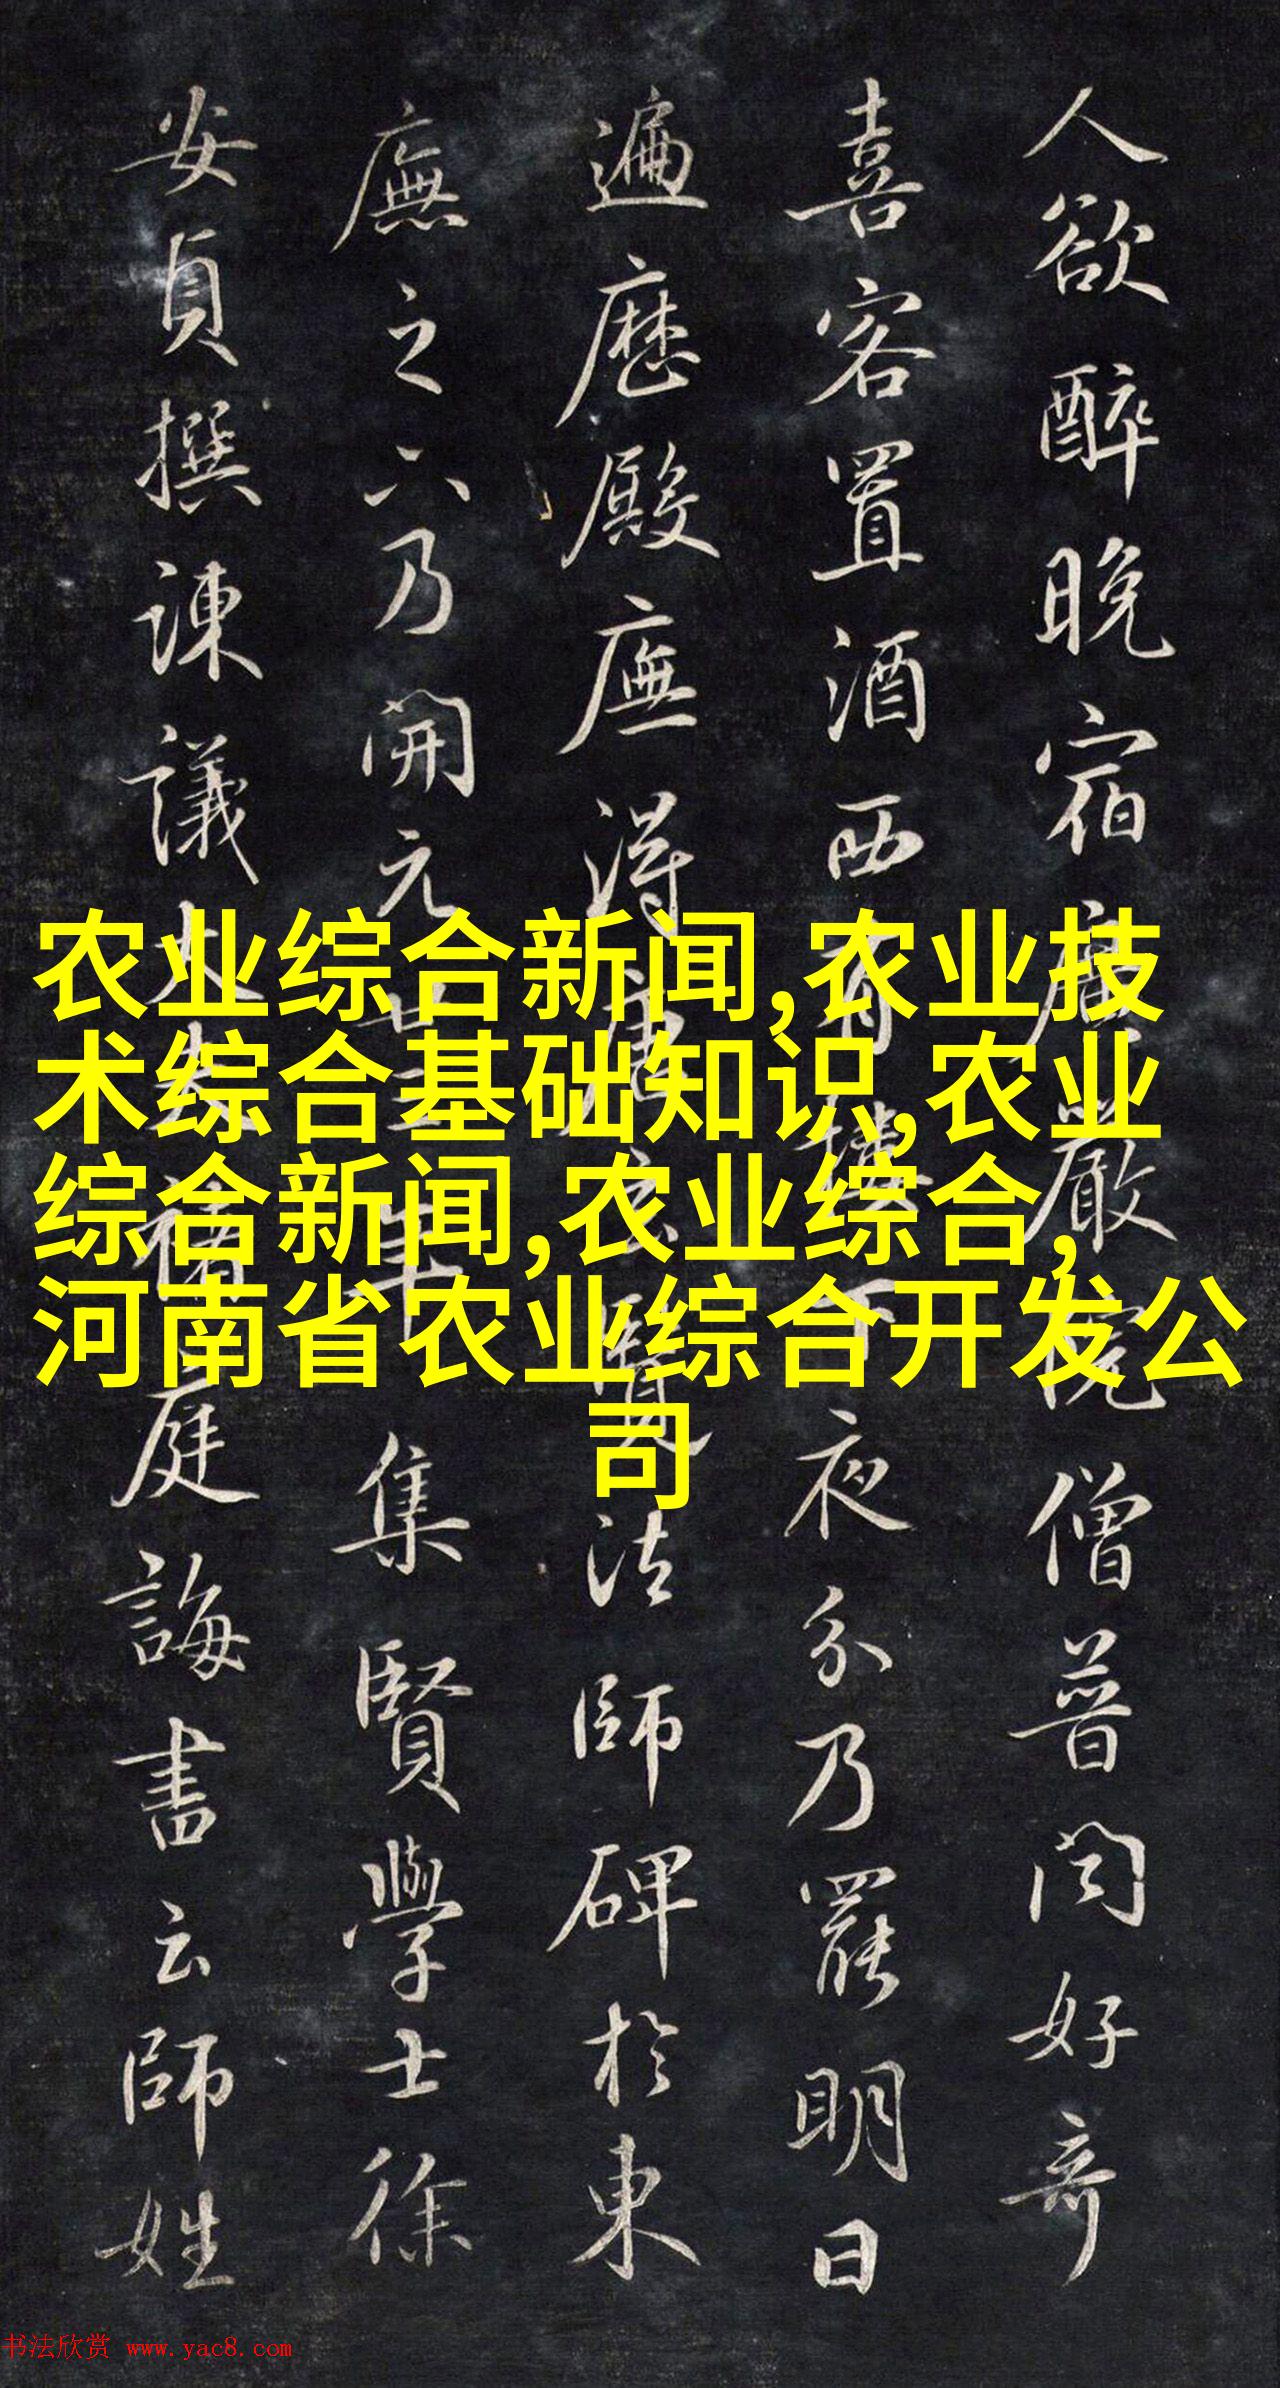 人欲醉晚宿廣嚴院僧普闻好奇
喜客置酒西有樓下夜分乃罷明日
遍歷殿廡得唐玄覽法師碑於東
廡之下乃開元廿三年集賢學士徐
安貞撰諫議大夫褚庭誨書云師姓
农业综合新闻,农业技
术综合基础知识,农业
综合新闻,农业综合,
河南省农业综合开发公
司
书法欣赏 www.yac8.com